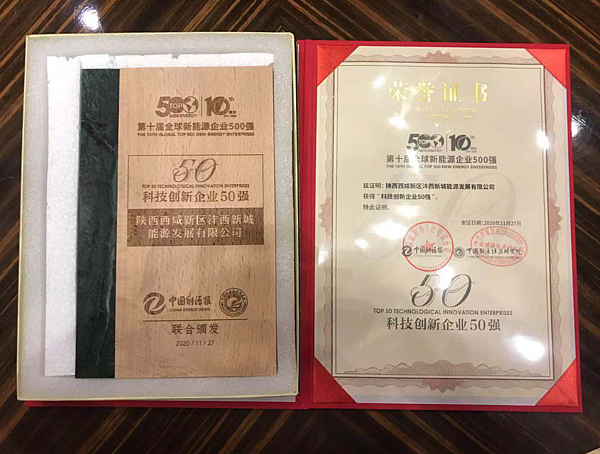 500 10th
TOP
NEW ENERGY
第十届全球新能源企业500强
THE 10TH GLOBAL TOP 500 NEW ENERGY ENTERPRISES
50
TOP 50 TECHNOLOGICAL INNOVATION ENTERPRISES
科技创新企业50强
陕西西咸新区沣西新城
能源发展有限公司
中国能源报
CHINA ENERGY NEWS
联合颁发
2020 / 11 / 27
荣誉证书
500 10th
TOP
NEW ENERGY
第十届全球新能源企业500强
THE 10TH GLOBAL TOP 500 NEW ENERGY ENTERPRISES
兹证明：陕西西咸新区沣西新城能源发展有限公司
获得“科技创新企业50强”。
特此证明。
发证日期：2020年11月27日
中国能源报
中国能源经济研究院
50
TOP 50 TECHNOLOGICAL INNOVATION ENTERPRISES
科技创新企业50强